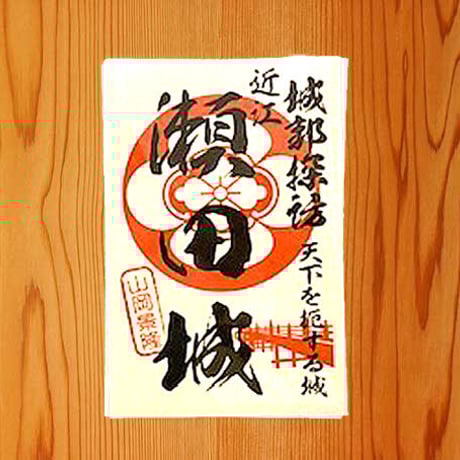 城郭探訪
天下を扼する城
近江
瀬田城
山岡景隆